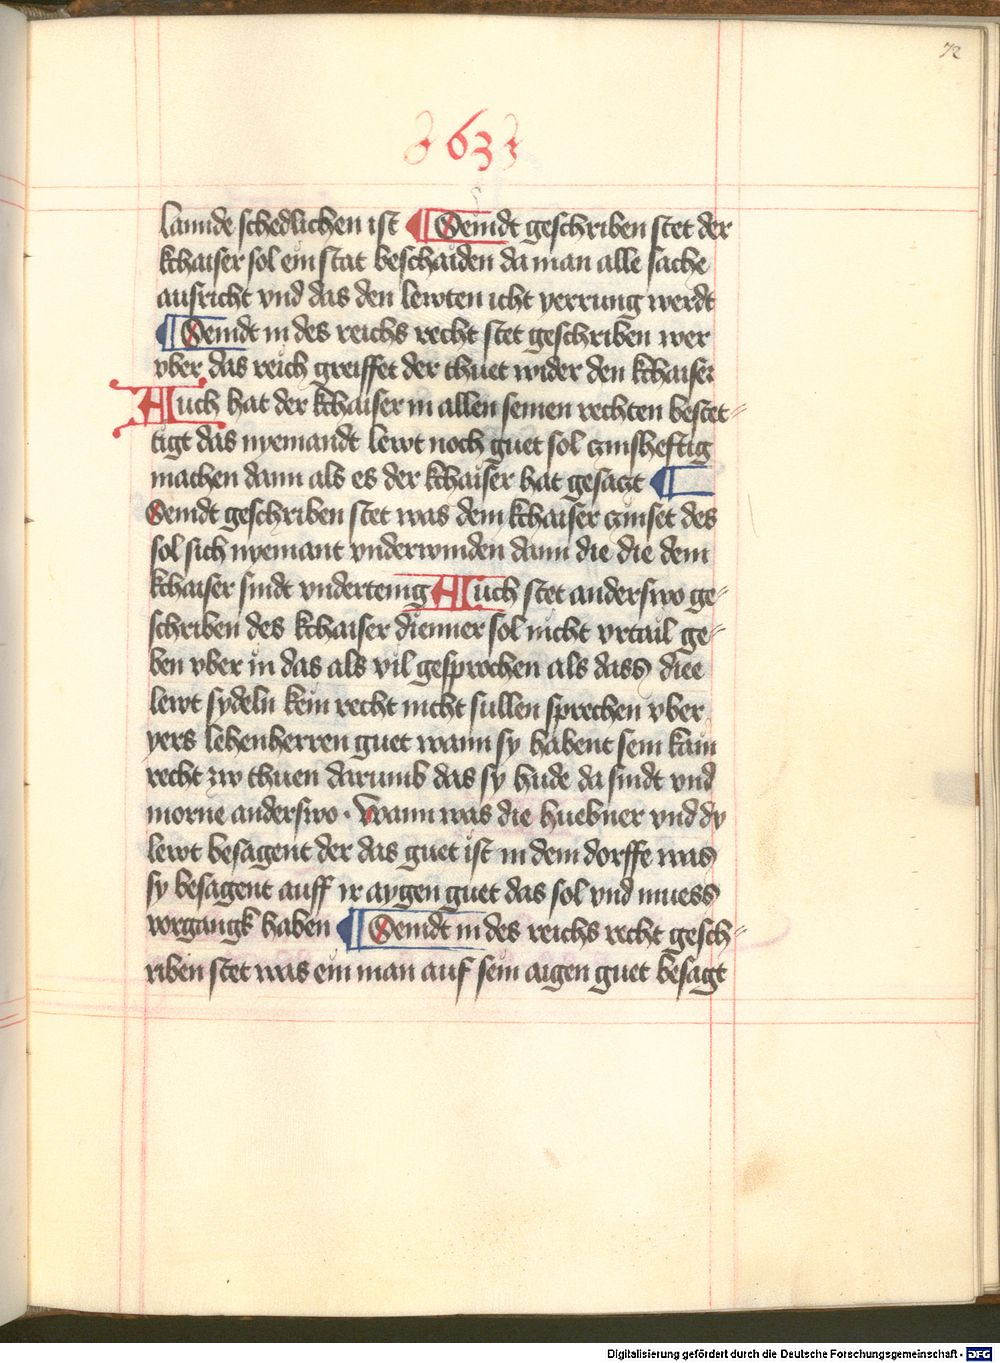 72
63
lannde schedlichen ist ¶ Seindt geschriben stet der
kchaiser sol ein stat beschaiden da man alle sache
ausricht vnd das den lewten icht yerrung werdt
¶ Seindt in des reichs recht stet geschriben wer
vber das reich greiffet der thuet wider den kchaiser
Auch hat der kchaiser in allen seinen rechten bestet=
tigt das nyemandt lewt noch guet sol zinsheftig
machen dann als es der kchaiser hat gesatzt ¶
Seindt geschriben stet was dem kchaiser zinset des
sol sich nyemant vnderwinden dann die die dem
kchaiser sindt vndertenig Auch stet anderswo ge=
schriben des kchaiser dienner sol nicht vrtail ge=
ben vber in das als vil gesprochen als dass diee
lewt sydeln kein recht nicht sullen sprechen vber
yers lehenherren guet wann sy habent sein kain
recht zw thuen darumb das sy hude da sindt vnd
morne anderswo · Wann was die huebner vnd dy
lewt besagent der das guet ist in dem dorffe was
sy besagent auff ir aygen guet das sol vnd muess
vorgangk haben ¶ Seindt in des reichs recht gesch=
riben stet was ein man auf sein aigen guet besagt
Digitalisierung gefördert durch die Deutsche Forschungsgemeinschaft - DFG